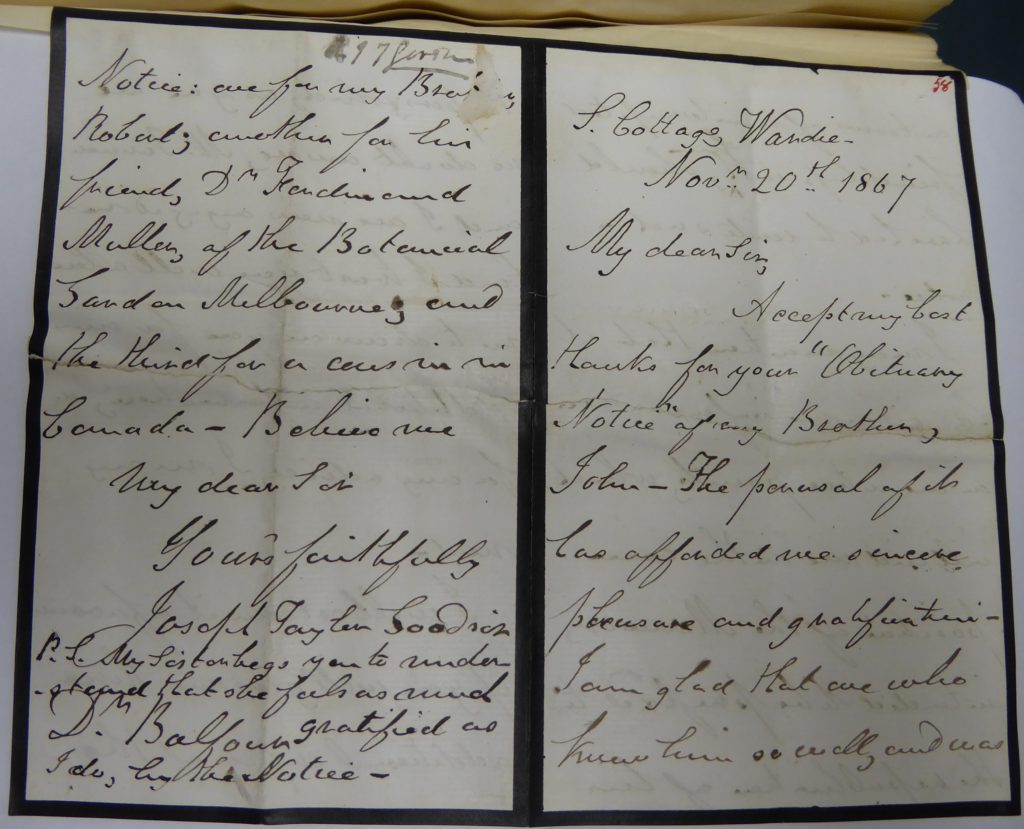 58
S. Cottage, Wardie-
Novr. 20th 1867
My dear Sir,
Accept my best
thanks for your "Obituary
Notice" of my Brother,
John - The perusal of it
has afforded me sincere
pleasure and gratification -
I am glad that one who
knew him so well, and was
Notice: one for my Brother,
Robert; another for his
friend, Dr Ferdinand
Muller, of the Botanical
Garden Melbourne; and
the third for a cousin in
Canada - Believe me
My dear Sir
Yours faithfully
Joseph Taylor Goodsir
P.S. My Sister begs you to under-
-stand that she feels as much
gratified as
Dr. Balfour
I do, by the Notice -